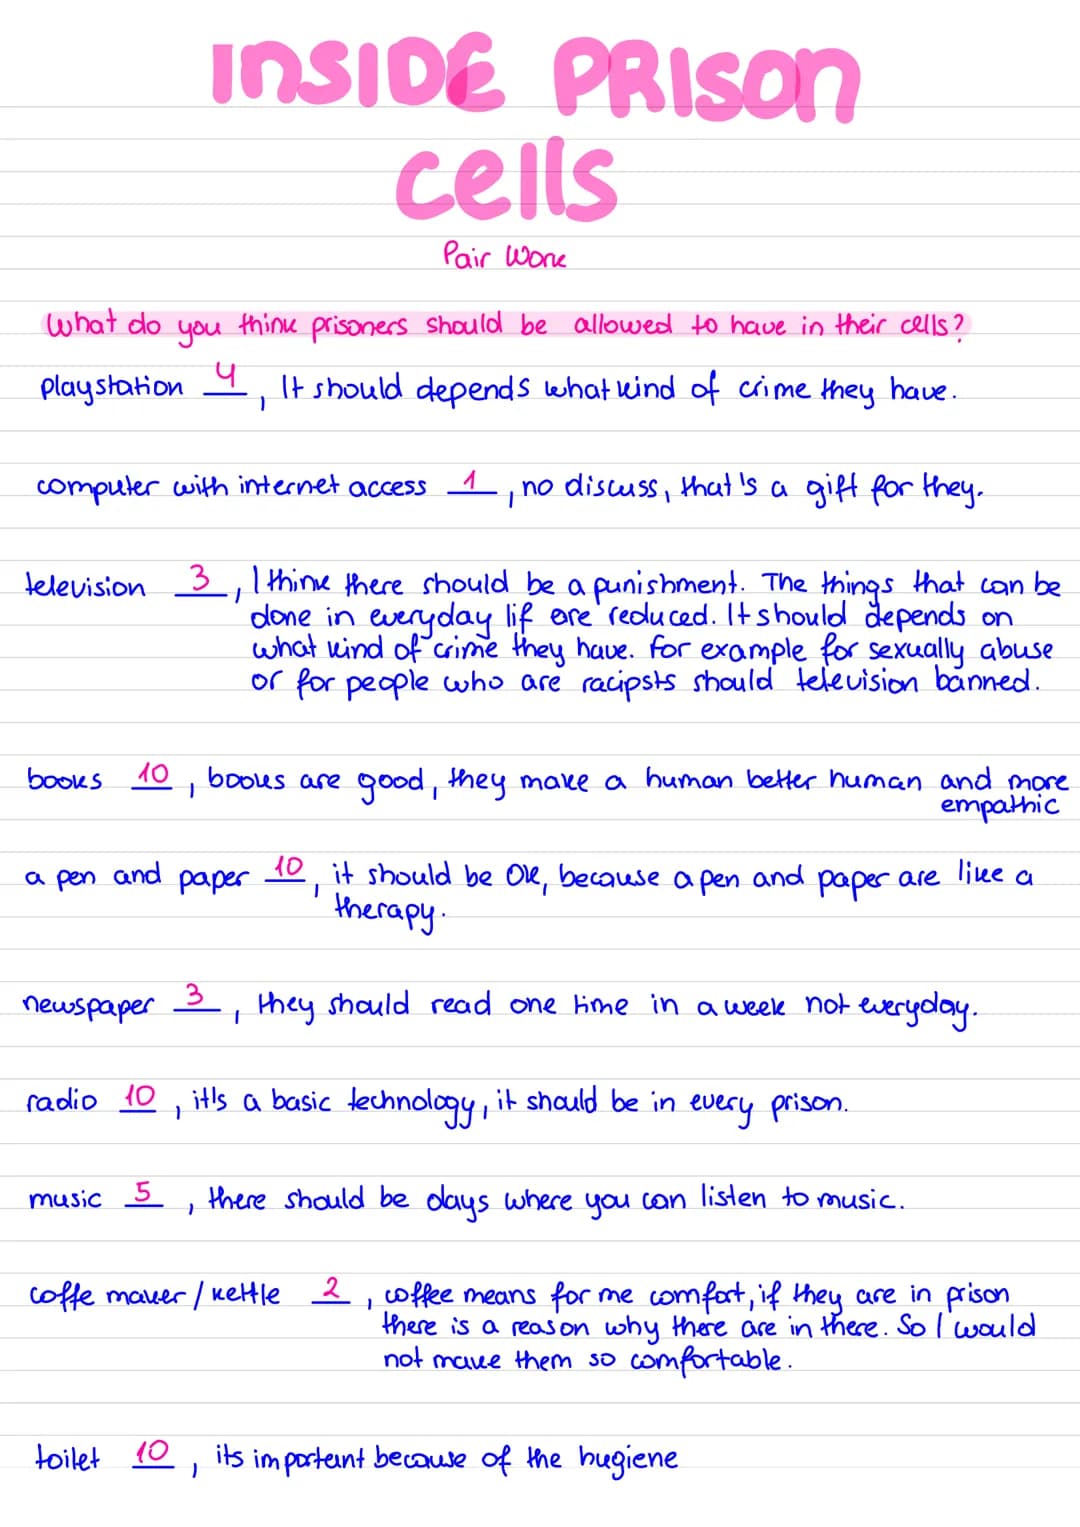 INSIDE PRISON
cells
Pair Work
What do you think prisoners should be allowed to have in their cells?
playstation 4, It should depends what kind of crime they have.
computer with internet access 1, no discuss, that's a gift for they.
television 3, I think there should be a punishment. The things that can be
done in everyday lif are reduced. It should depends on
what kind of crime they have. For example for sexually abuse
or for people who are racipsts should television banned.
books 10, books are good, they make a human better human and more
empathic
a pen and paper 10, it should be Ok, because a pen and paper are like a
therapy.
newspaper 3, they should read one time in a week not everyday.
radio 10, it's a basic technology, it should be in every prison.
music 5, there should be days where you can listen to music.
coffe maker / kettle 2, coffee means for me comfort, if they are in prison
there is a reason why there are in there. So I would
not make them so comfortable.
toilet 10, its importent because of the hugiene